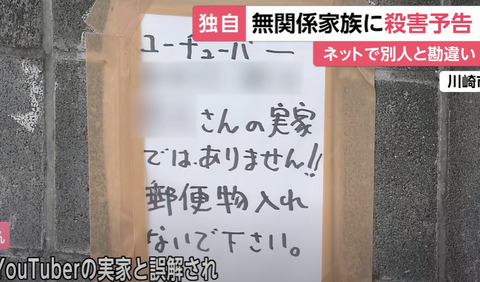 独自
無関係家族に殺害予告
ネットで別人と勘違い
川崎市
ユーチューバー
さんの実家
ではありません!!
郵便物入れ
ないで下さい。
YouTuberの実家と誤解され